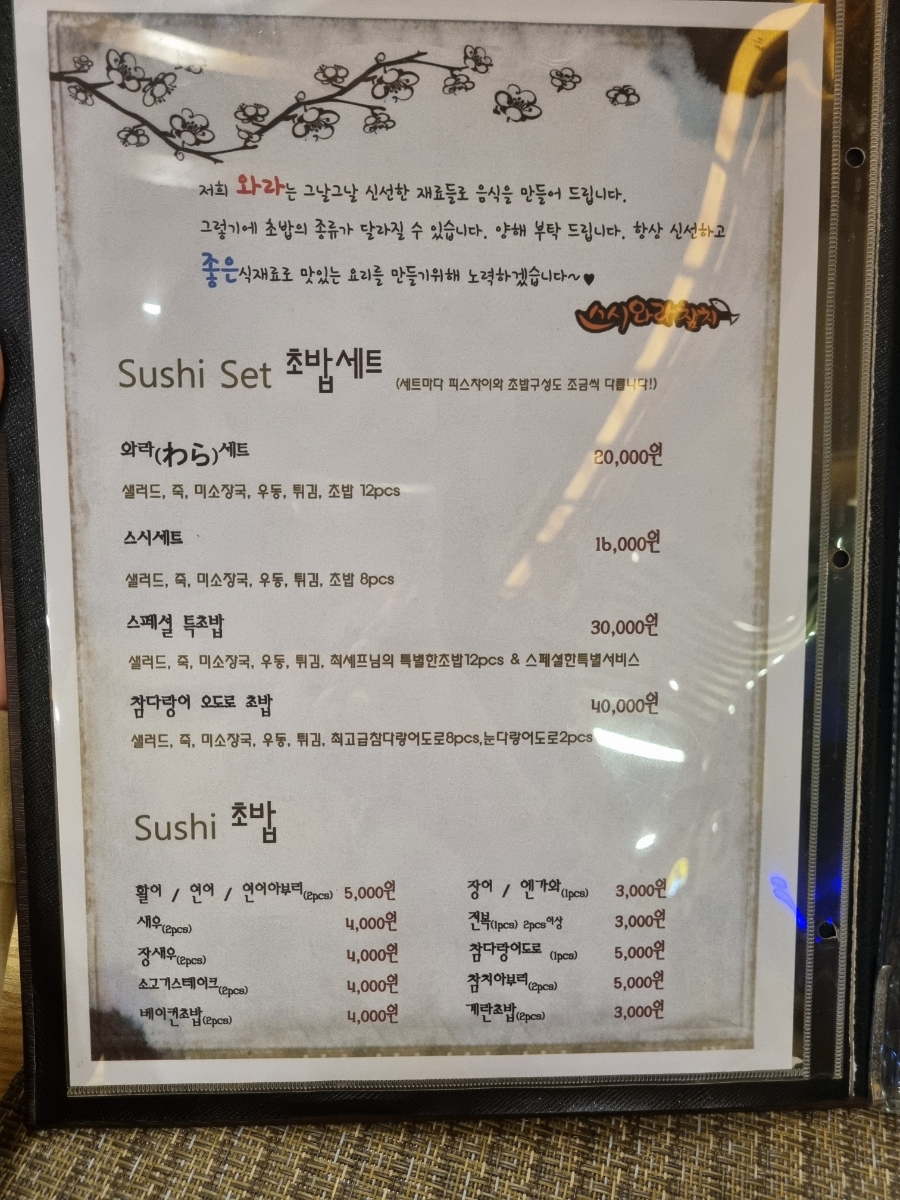 저희 와라는 그날그날 신선한 재료들로 음식을 만들어 드립니다.
그렇기에 초밥의 종류가 달라질 수 있습니다. 양해 부탁 드립니다. 항상 신선하고
좋은식재료로 맛있는 요리를 만들기위해 노력하겠습니다~♥
스시와라참치
Sushi Set 초밥세트 (세트마다 피스차이와 초밥구성도 조금씩 다릅니다!)
와라(わら)세트 20,000원
샐러드, 죽, 미소장국, 우동, 튀김, 초밥 12pcs
스시세트 16,000원
샐러드, 죽, 미소장국, 우동, 튀김, 초밥 8pcs
스페셜 특초밥 30,000원
샐러드, 죽, 미소장국, 우동, 튀김, 최셰프님의 특별한초밥12pcs & 스페셜한특별서비스
참다랑어 오도로 초밥 40,000원
샐러드, 죽, 미소장국, 우동, 튀김, 최고급참다랑어도로8pcs,눈다랑어도로2pcs
Sushi 초밥
활어 / 연어 / 연어아부리(2pcs) 5,000원
새우(2pcs) 4,000원
장새우(2pcs) 4,000원
소고기스테이크(2pcs) 4,000원
베이컨초밥(2pcs) 4,000원
장어 / 엔가와(1pcs) 3,000원
전복(1pcs) 2pcs이상 3,000원
참다랑어도로 (1pcs) 5,000원
참치아부리(2pcs) 5,000원
계란초밥(2pcs) 3,000원